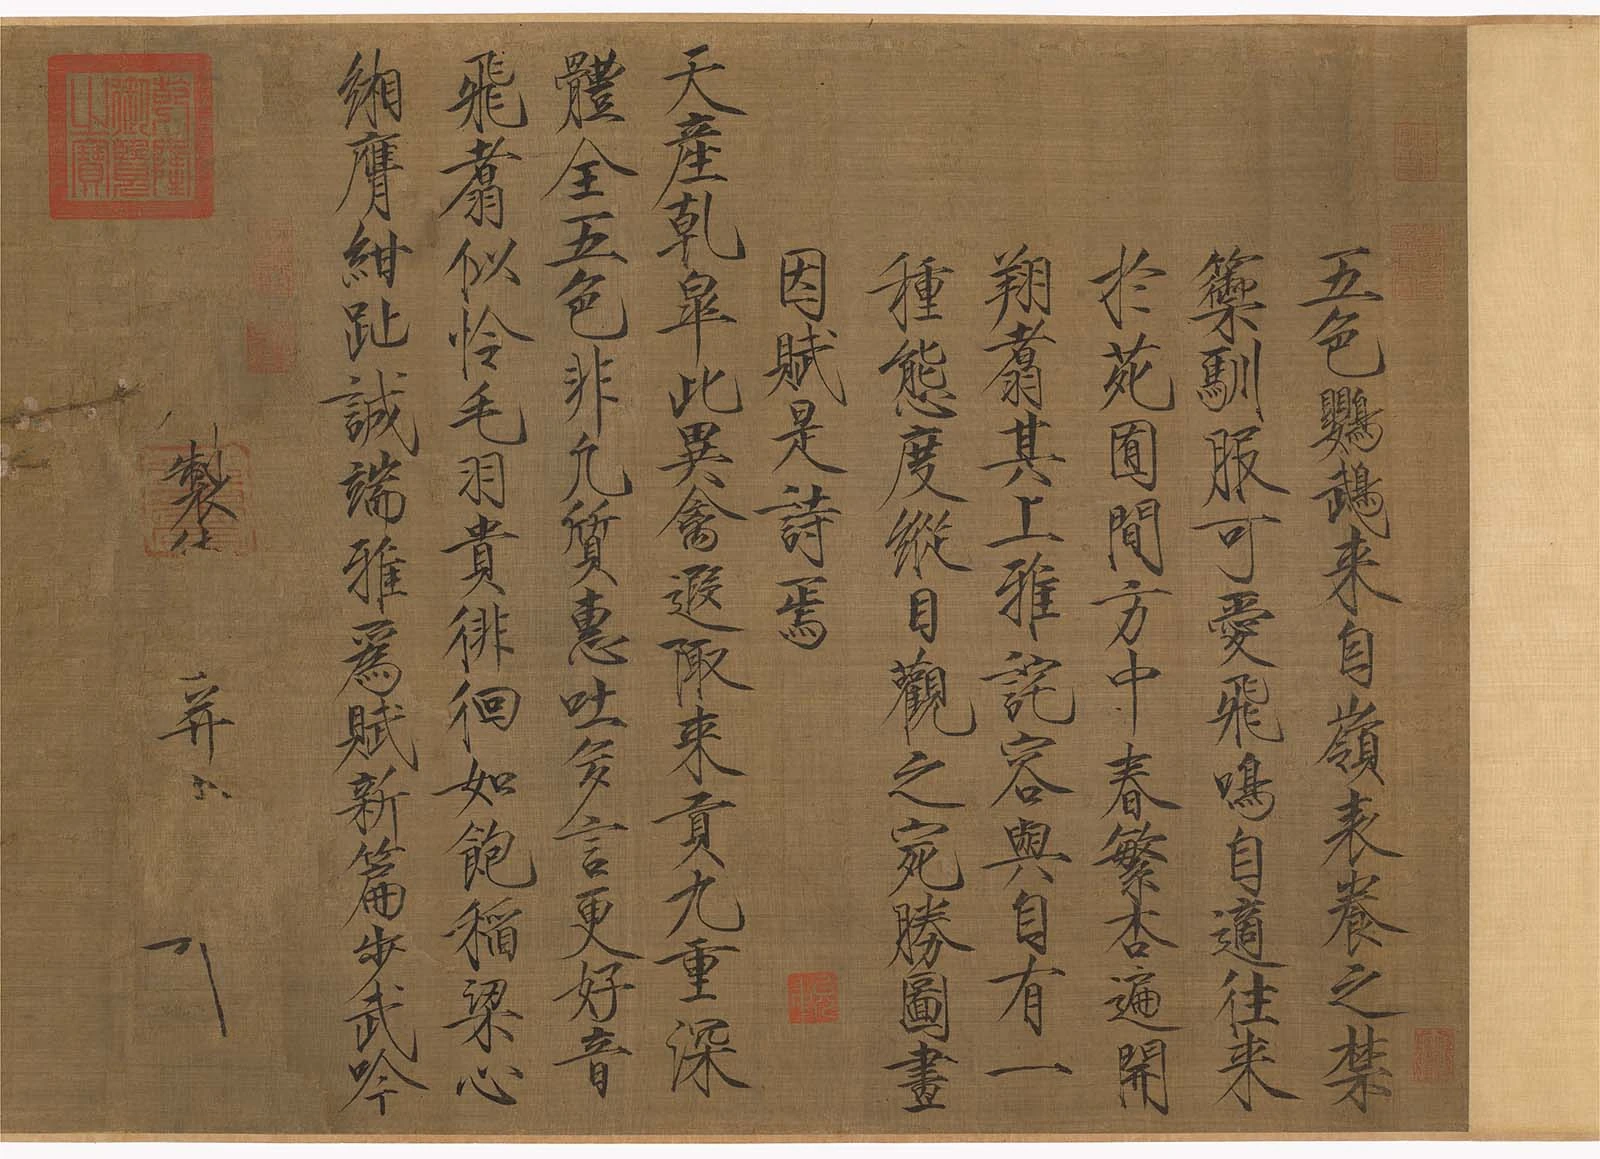 五色鸚鵡来自嶺表養之禁
籞馴服可愛飛鳴自適往来
扵苑囿間方中春繁杏遍開
翔翥其上雅詫容與自有一
種態度縱目觀之宛勝圖畫
因賦是詩焉
天産乾皋此異禽遐陬来貢九重深
體全五色非凡質惠吐多言更好音
飛翥似怜毛羽貴徘徊如飽稲粱心
緗膺紺趾誠端雅爲賦新篇步武吟
製
乾隆御覽之寶